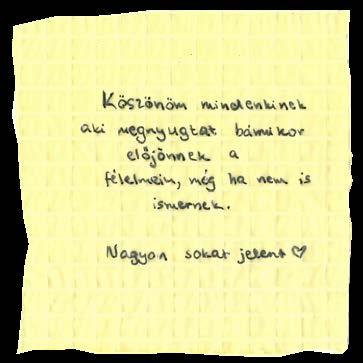 Köszönöm mindenkinek
aki megnyugtat bármikor
előjönnek a
félelmeim, még ha nem is
ismernek.
Nagyon sokat jelent ♡